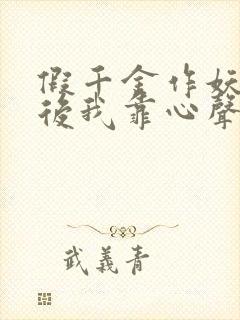 假千金作妖
後我靠心聲
武義青